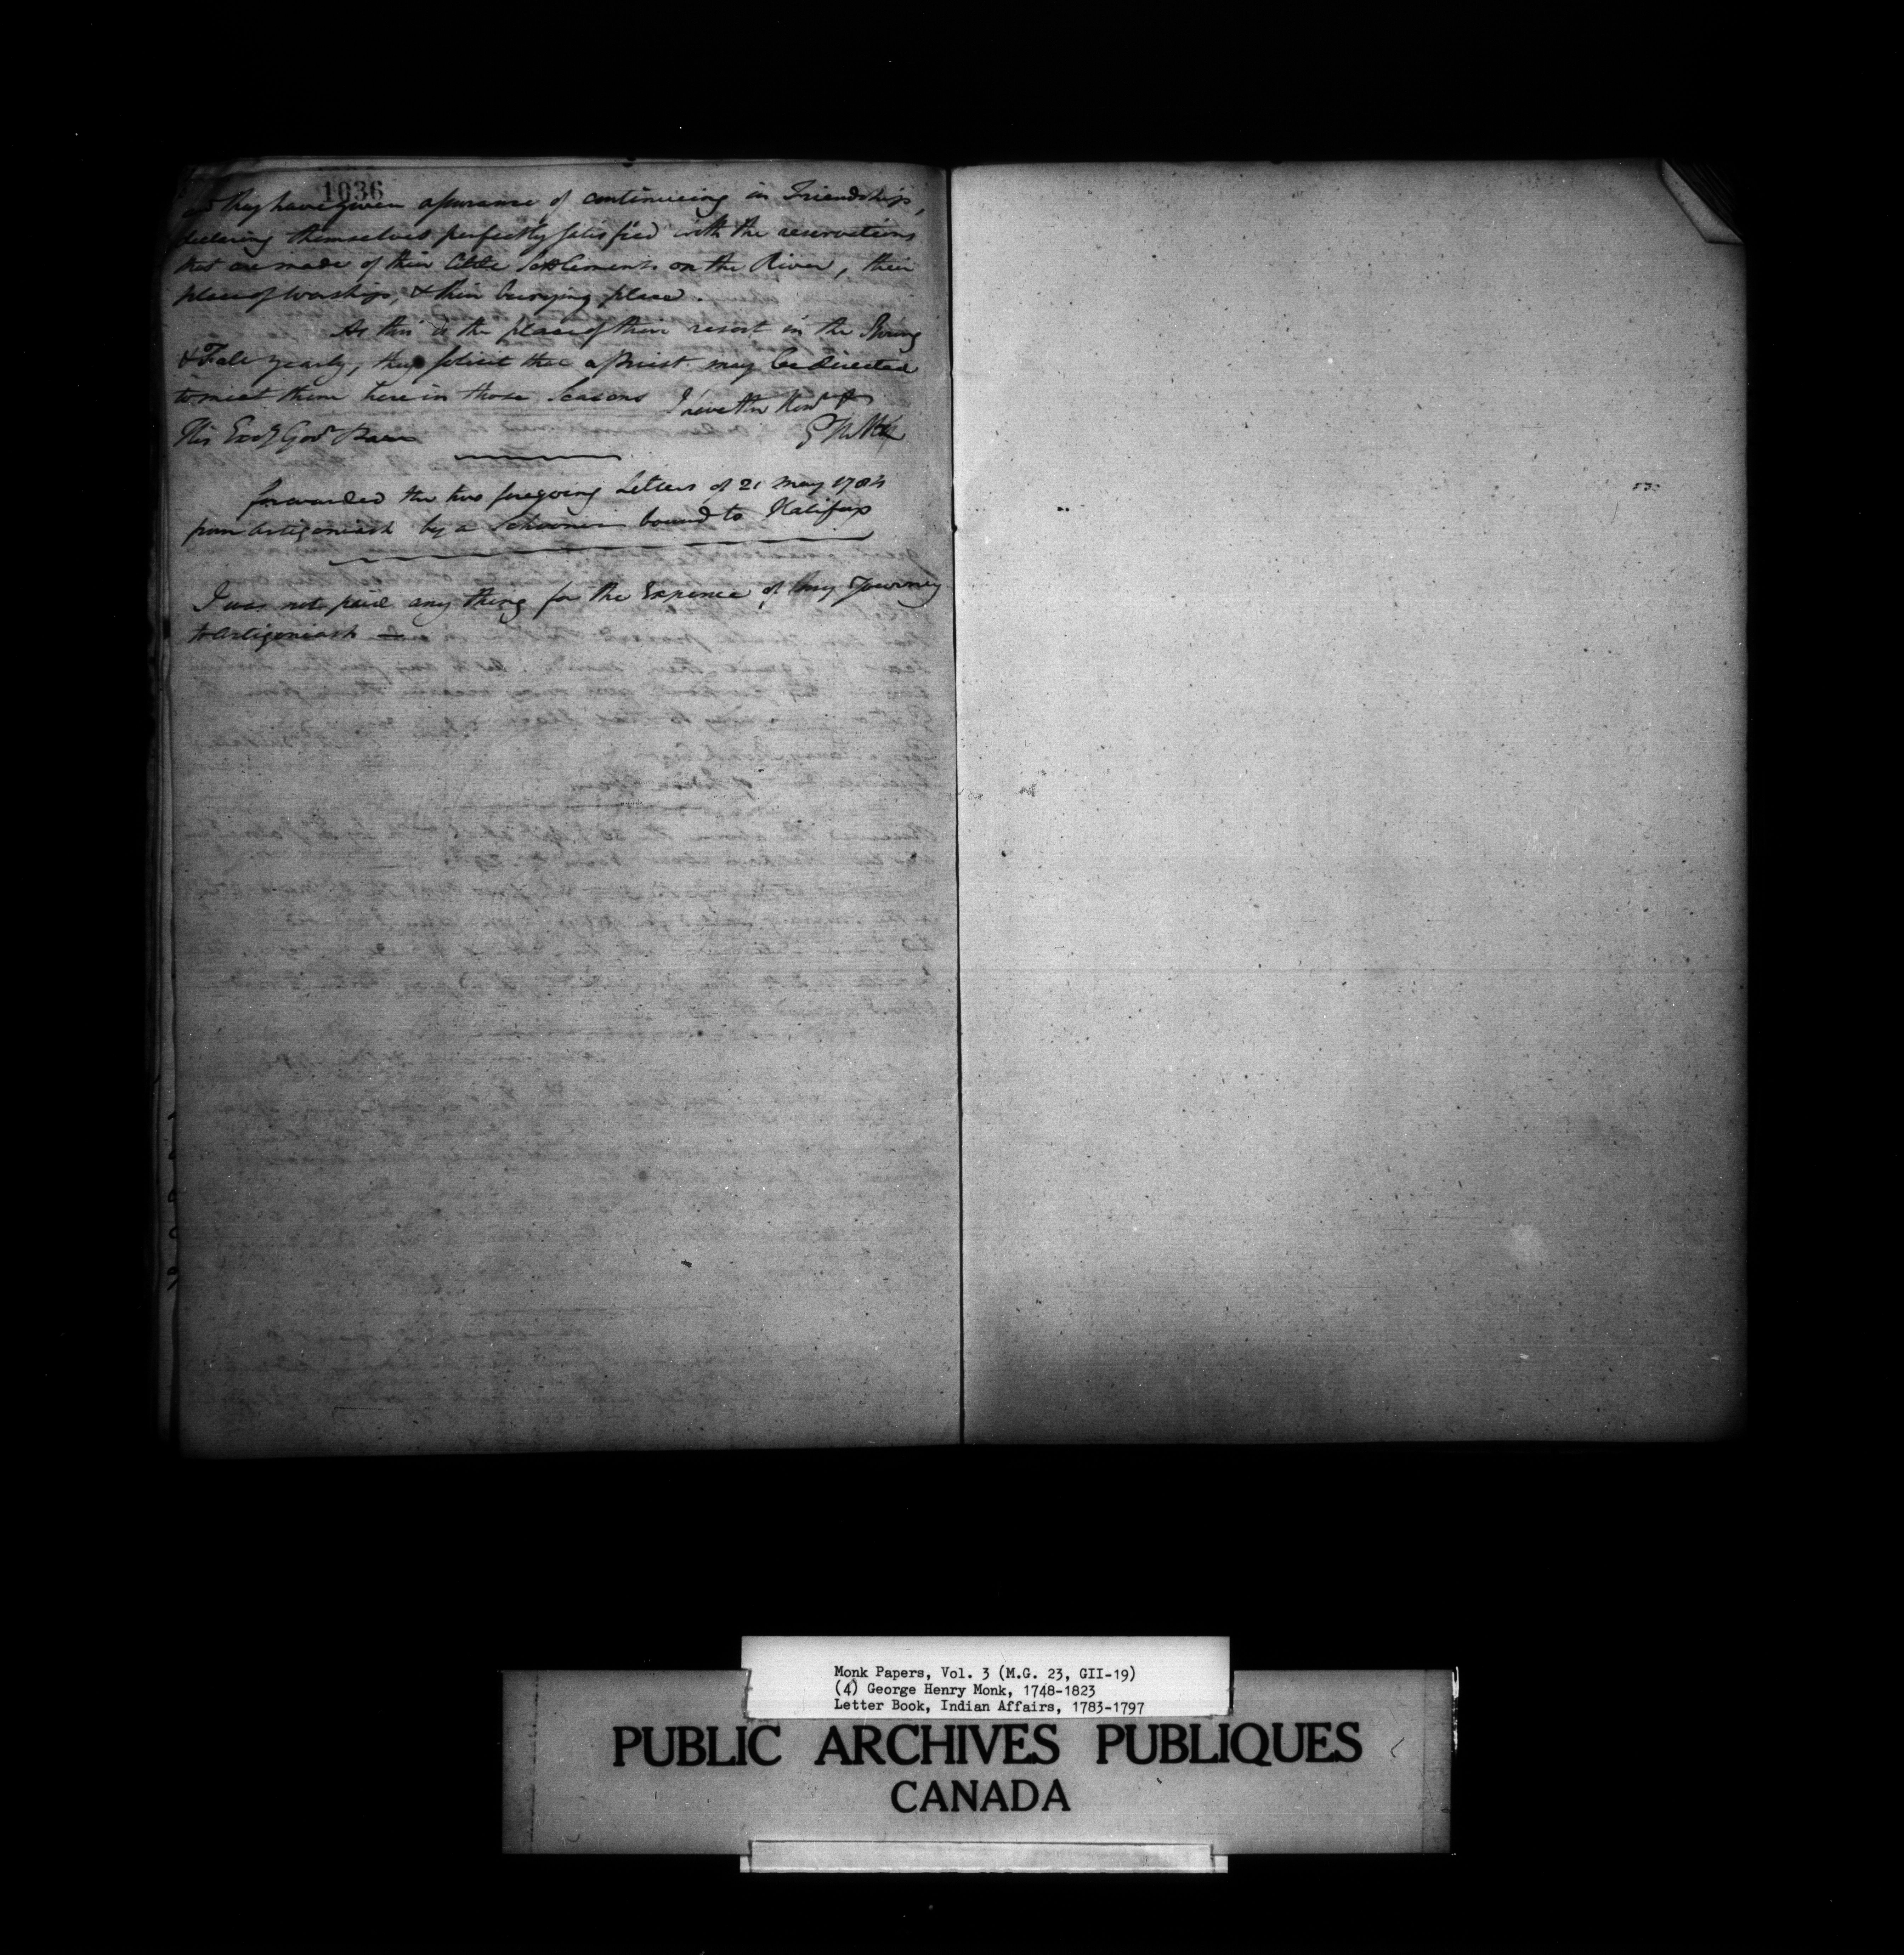 1036
and they have given assurance of continueing in Friendship,
declaring themselves perfectly satisfied with the reservations
that are made of their little Settlements on the River, their
place of worship, & their burying place.
As this is the place of their resort in the Spring
& Fall yearly, they solicit that a Priest may be directed
to meet them here in those Seasons I have the Honr &c
His Excy Govr Parr
G H Monk
forwarded the two foregoing Letters of 21 May 1784
from Antigoniash by a Schooner bound to Halifax
I was not paid any thing for the Expence of my Journey
to Antigoniash —
Monk Papers, Vol. 3 (M.G. 23, GII-19)
(4) George Henry Monk, 1748-1823
Letter Book, Indian Affairs, 1783-1797
PUBLIC ARCHIVES PUBLIQUES
CANADA